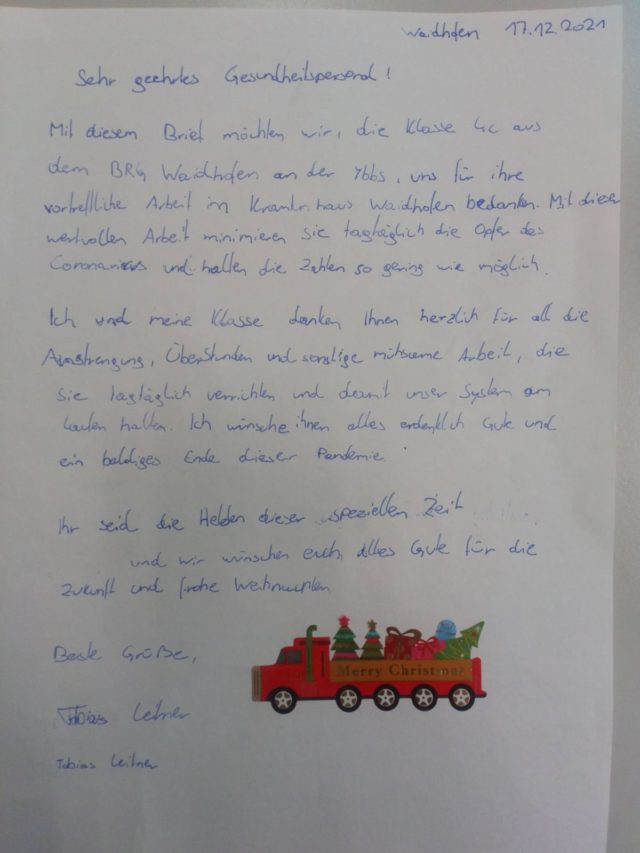 Waidhofen 17.12.2021
Sehr geehrtes Gesundheitspersonal!
Mit diesem Brief möchten wir, die Klasse 4c aus
dem BRG Waidhofen an der Ybbs, uns für ihre
vortreffliche Arbeit im Krankenhaus Waidhofen bedanken. Mit dieser
wertvollen Arbeit minimieren Sie tagtäglich die Opfer des
Coronavirus und halten die Zahlen so gering wie möglich.
Ich und meine Klasse danken Ihnen herzlich für all die
Anstrengung, Überstunden und sonstige mühsame Arbeit, die
Sie tagtäglich verrichten und damit unser System am
laufen halten. Ich wünsche ihnen alles erdenklich Gute und
ein baldiges Ende dieser Pandemie.
Ihr seid die Helden dieser speziellen Zeit
und wir wünschen euch alles Gute für die
Zukunft und frohe Weihnachten
Beste Grüße,
Merry Christmas
Tobias Leitner
Tobias Leitner